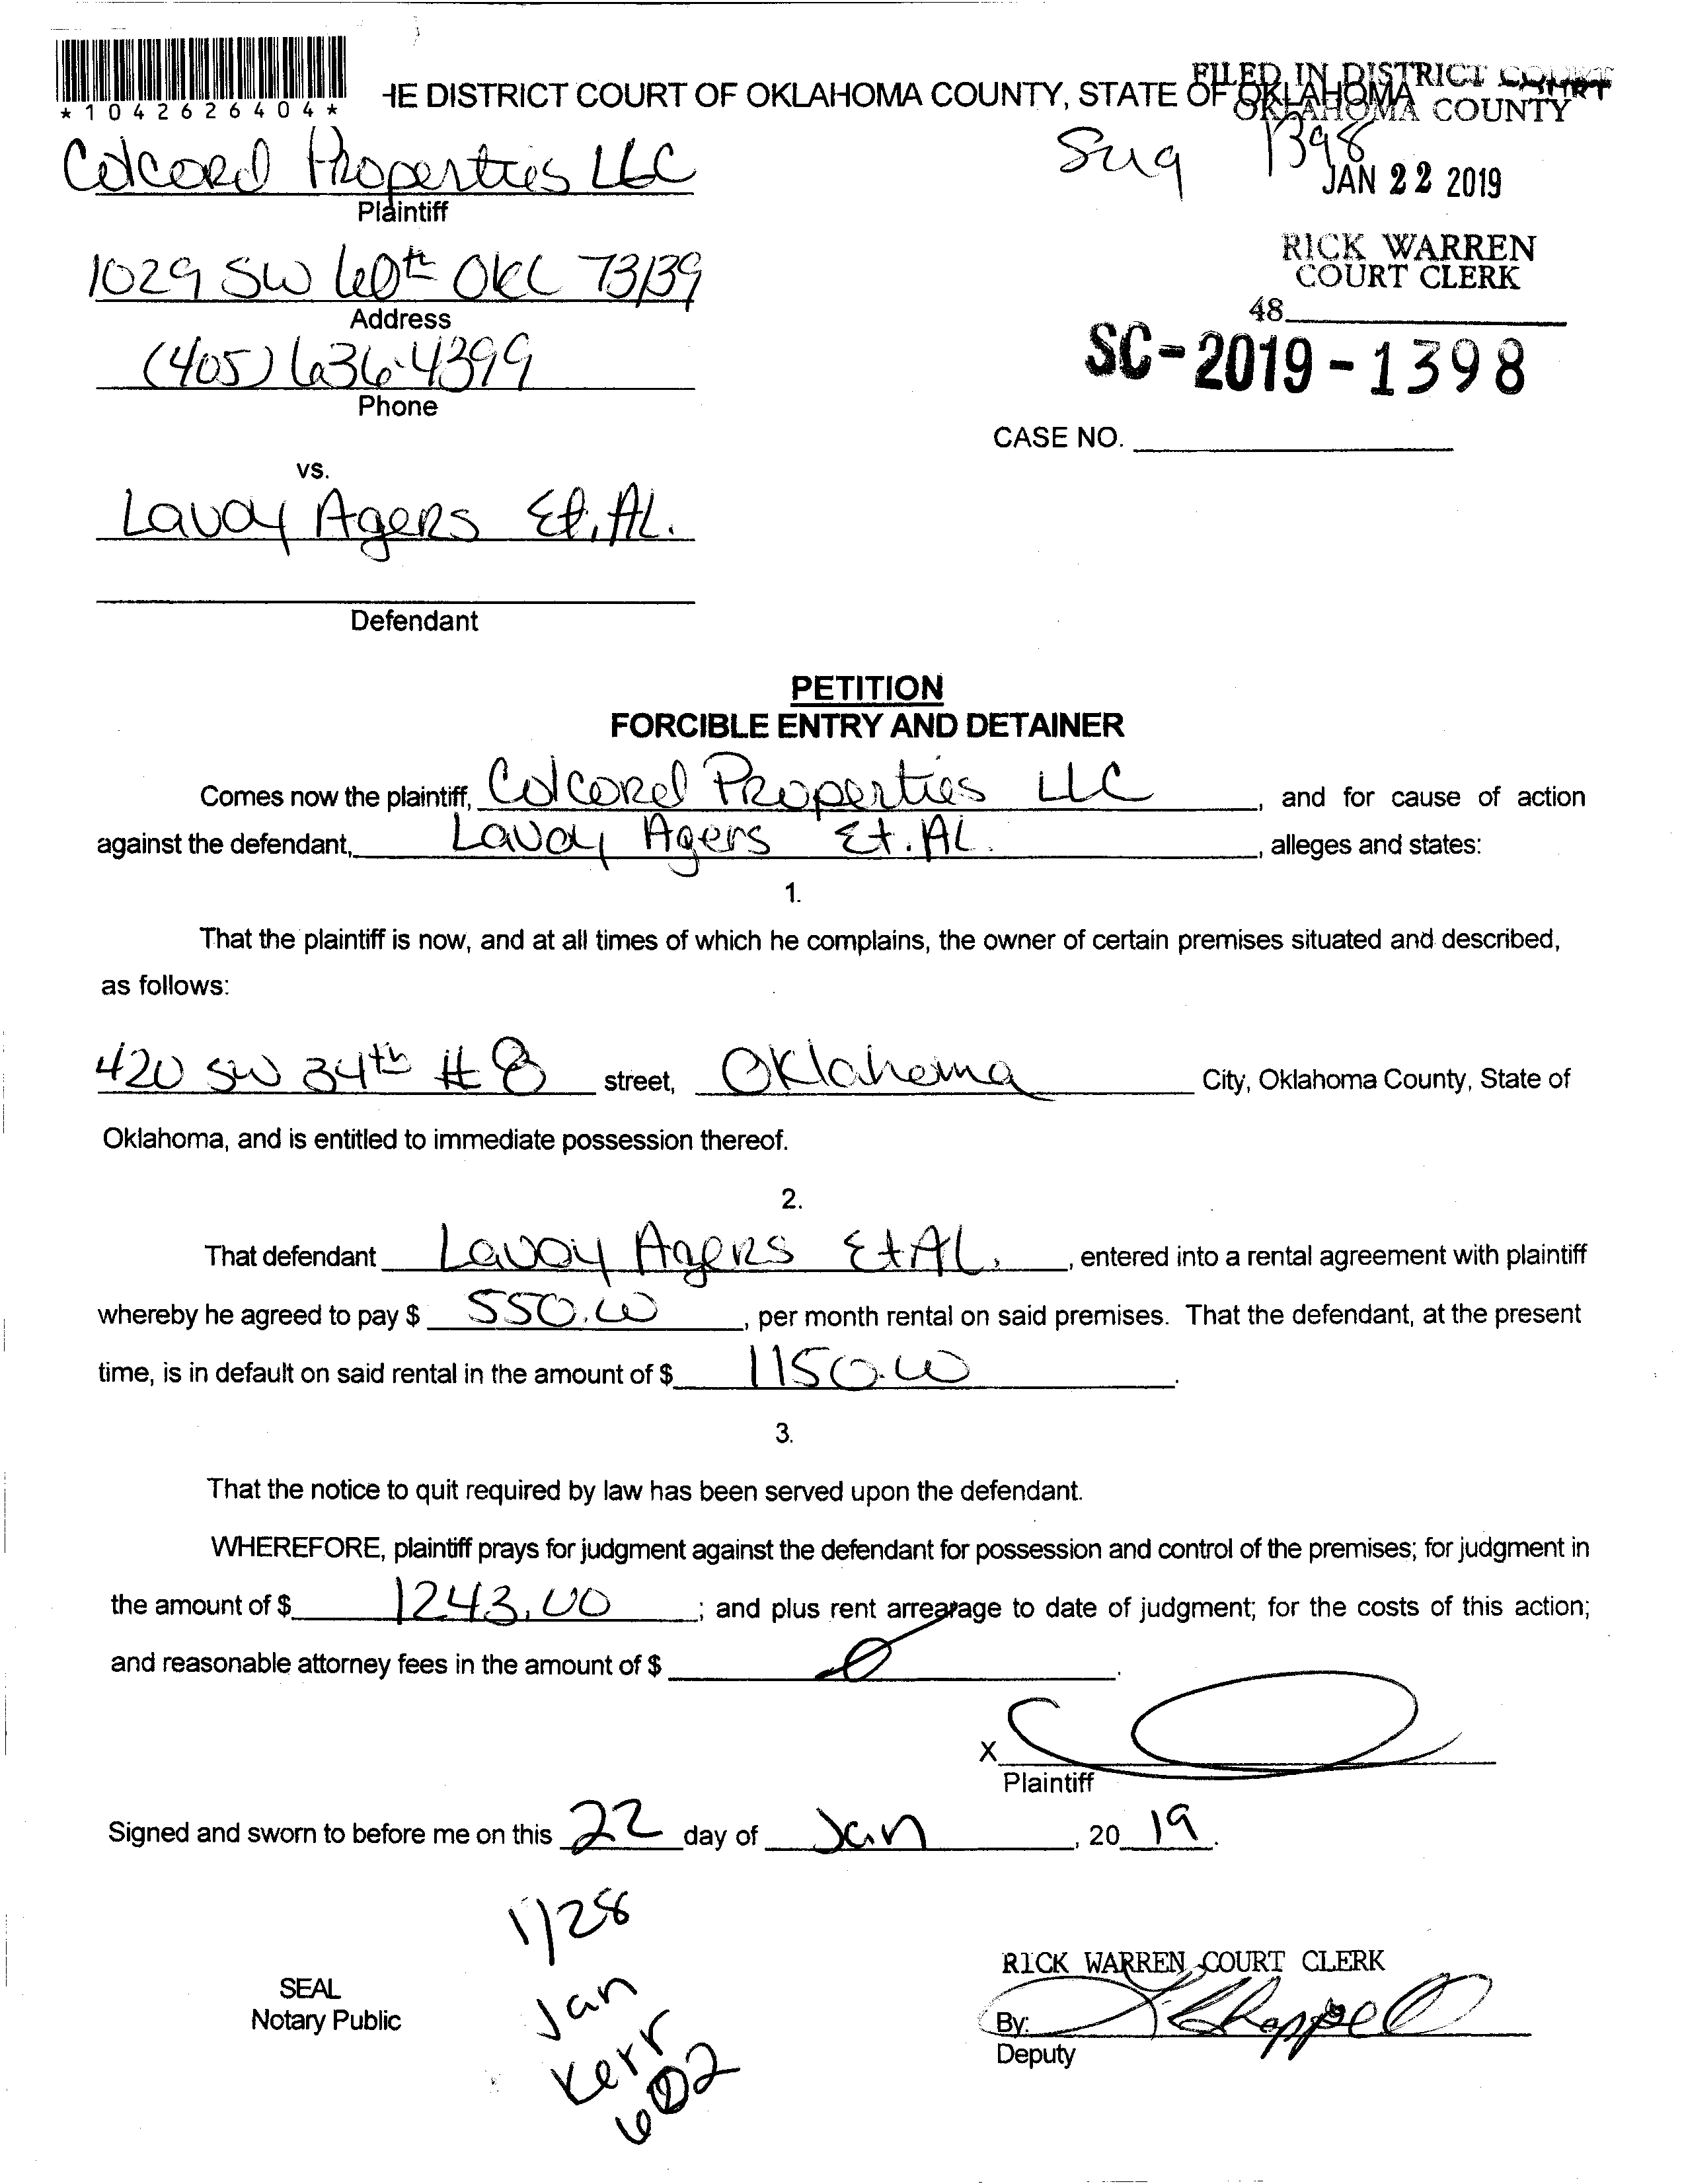 *1042626404*
HE DISTRICT COURT OF OKLAHOMA COUNTY, STATE OF OKLAHOMA
FILED IN DISTRICT COURT
OKLAHOMA COUNTY
Colcord Properties LLC
Plaintiff
1398
JAN 22 2019
1029 SW 60th OKC 73139
Address
RICK WARREN
COURT CLERK
48
(405) 636-4399
Phone
SC-2019-1398
CASE NO.
vs.
Lavoy Agers Et. AL.
Defendant
PETITION
FORCIBLE ENTRY AND DETAINER
Comes now the plaintiff, Colcord Properties LLC, and for cause of action
against the defendant, Lavoy Agers Et. AL., alleges and states:
1.
That the plaintiff is now, and at all times of which he complains, the owner of certain premises situated and described,
as follows:
420 SW 34th #8 street, Oklahoma City, Oklahoma County, State of
Oklahoma, and is entitled to immediate possession thereof.
2.
That defendant Lavoy Agers Et AL., entered into a rental agreement with plaintiff
whereby he agreed to pay $ 550.00, per month rental on said premises. That the defendant, at the present
time, is in default on said rental in the amount of $ 1150.00.
3.
That the notice to quit required by law has been served upon the defendant.
WHEREFORE, plaintiff prays for judgment against the defendant for possession and control of the premises; for judgment in
the amount of $ 1243.00; and plus rent arrearage to date of judgment; for the costs of this action;
and reasonable attorney fees in the amount of $ 0.
X
Plaintiff
Signed and sworn to before me on this 22 day of Jan, 2019.
1/28
Jan
Kerr
602
SEAL
Notary Public
RICK WARREN, COURT CLERK
By:
Deputy